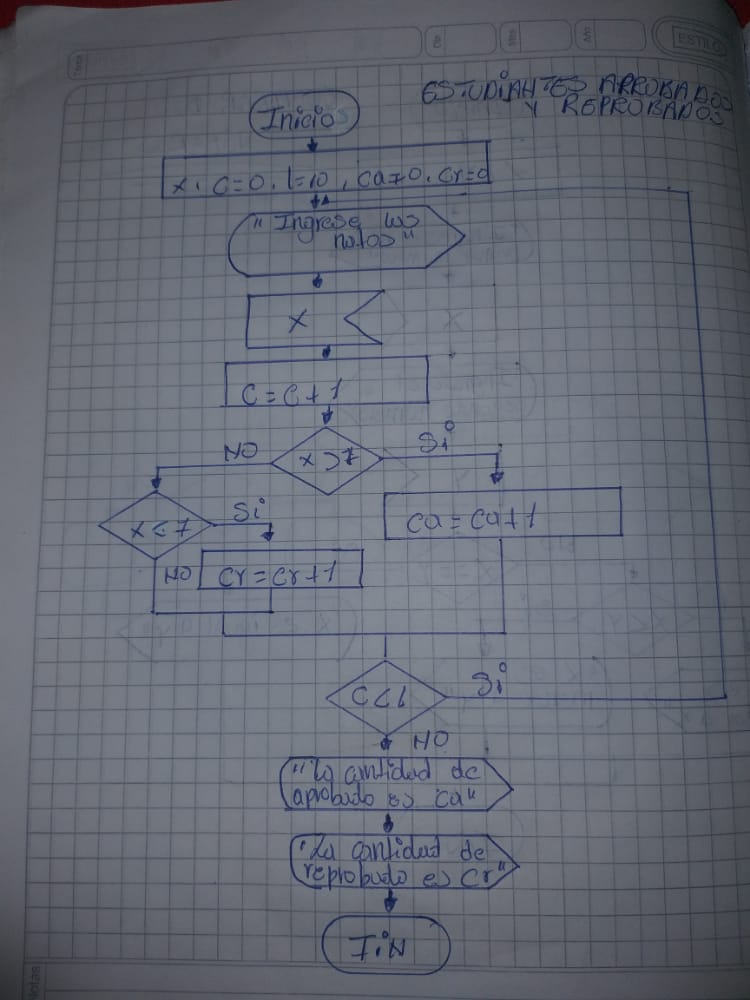 Tema
Día
Mes
Año
ESTILO
ESTUDIANTES APROBADOS
Y REPROBADOS
Inicio
x, C=0, l=10, Ca=0, Cr=0
"Ingrese las
notas"
X
C=C+1
NO
x>7
Si
x<7
Si
Ca=Ca+1
NO
Cr=Cr+1
C<l
Si
NO
"La cantidad de
aprobado es Ca"
"La cantidad de
reprobado es Cr"
FiN
Notas